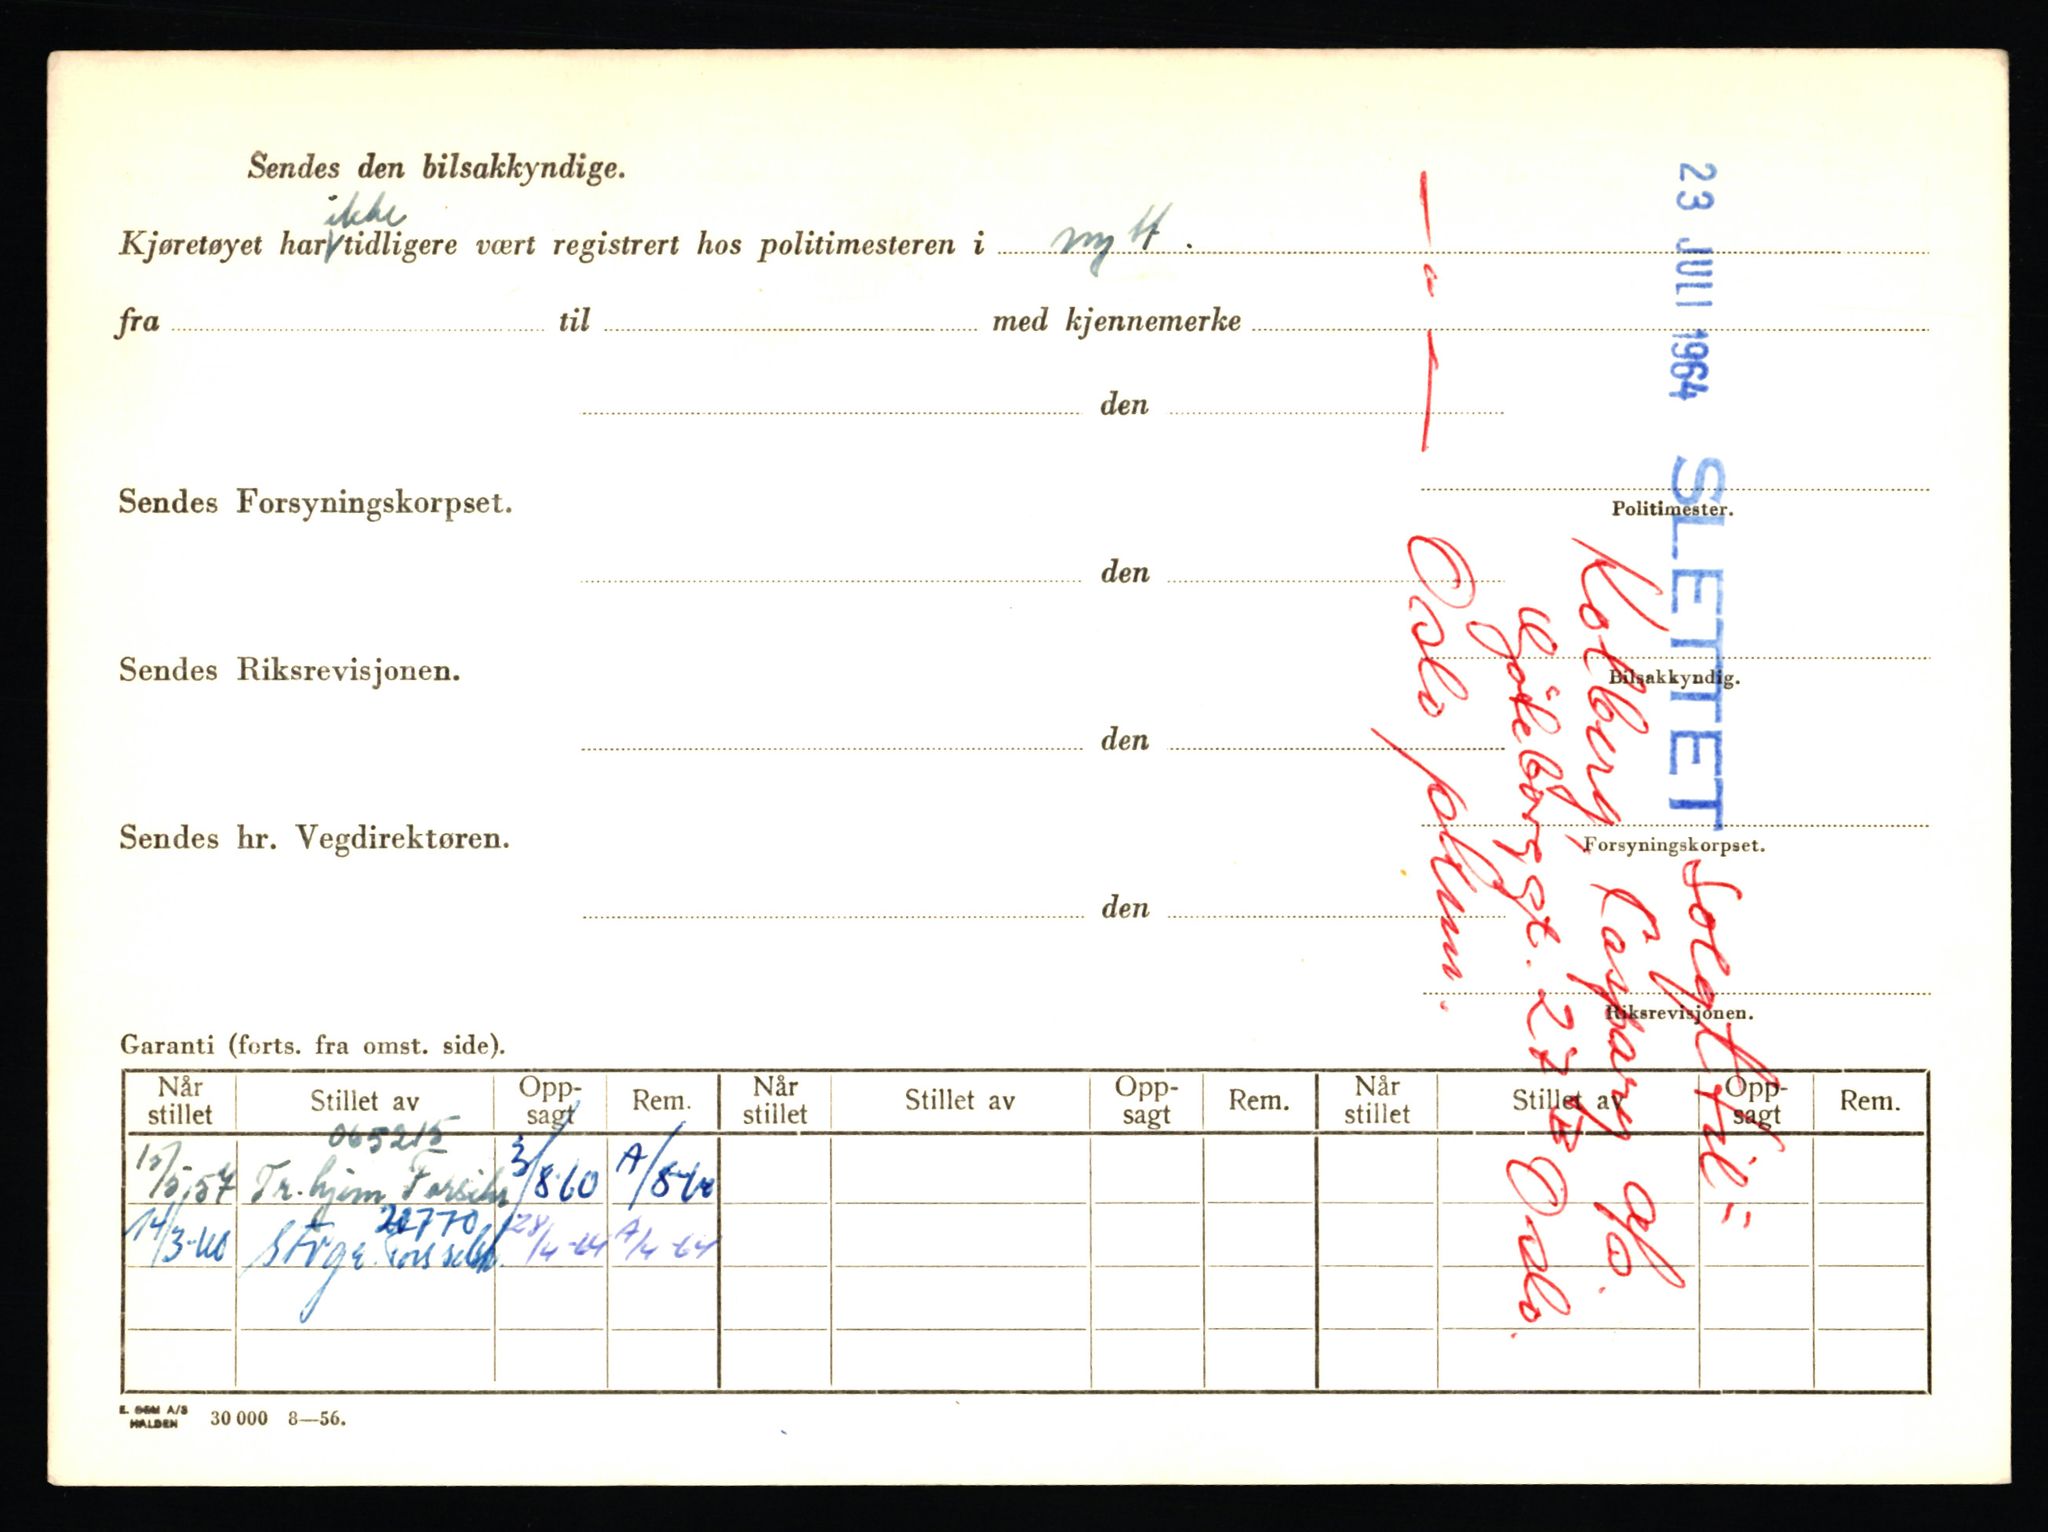 Sendes den bilsakkyndige.
ikke
Kjøretøyet har tidligere vært registrert hos politimesteren i nytt.
fra til med kjennemerke
den
Politimester.
Sendes Forsyningskorpset.
den
Bilsakkyndig.
Sendes Riksrevisjonen.
den
Forsyningskorpset.
Sendes hr. Vegdirektøren.
den
Riksrevisjonen.
23 JULI 1964 SLETTET
Solgt til =
Kolberg, Caspary o/o.
Göteborggt. 27 B Oslo.
Oslo politim.
— a —
Garanti (forts. fra omst. side).
Når stillet Stillet av Opp-sagt Rem. Når stillet Stillet av Opp-sagt Rem. Når stillet Stillet av Opp-sagt Rem.
065215
15/5.57 Tr.hjem Forsikr 3/8-60 A/8-60
20770
14/3-60 Storge. 28/4-64 A/4-64
E. SEM A/S
HALDEN 30 000 8—56.